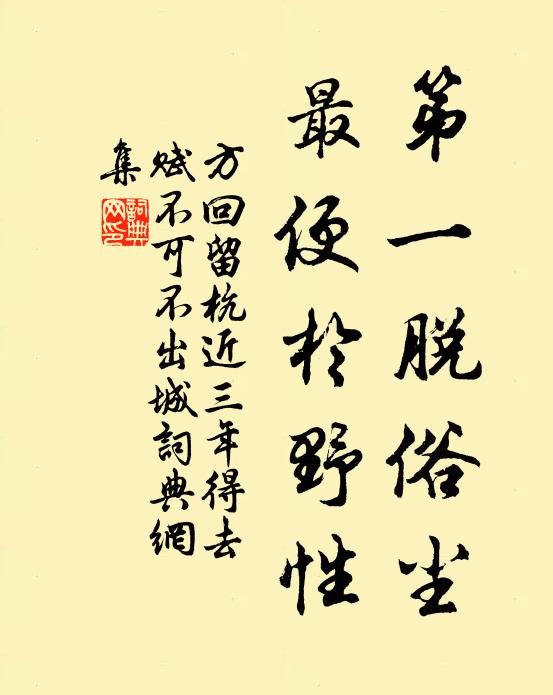 第一脱俗尘
最便於野性
方回留杭近三年得去
赋不可不出城詞典網
集
詞典網印